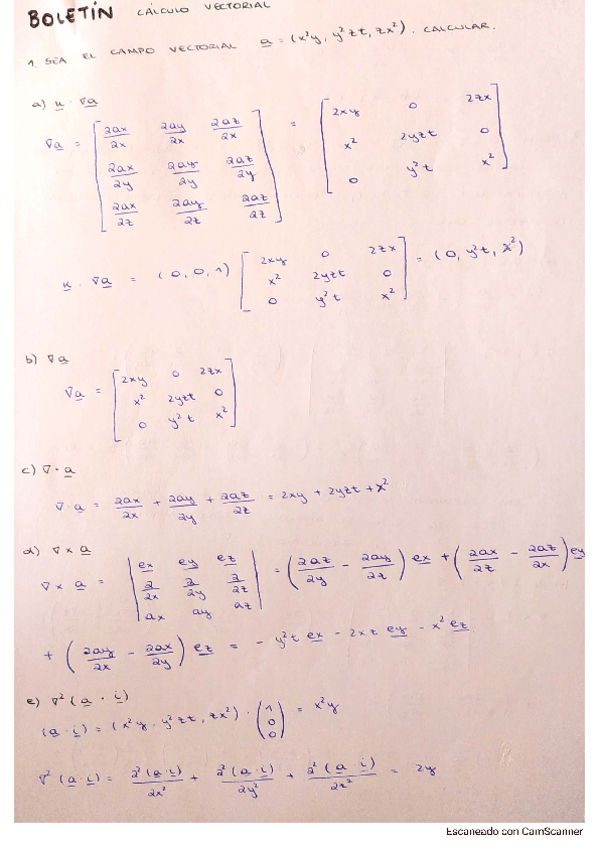 BOLETÍN CÁLCULO VECTORIAL
1. SEA EL CAMPO VECTORIAL a = (x²y, y²zt, zx²). CALCULAR.
a) k · ∇a
∇a = [∂ax/∂x ∂ay/∂x ∂az/∂x = [2xy 0 2zx
∂ax/∂y ∂ay/∂y ∂az/∂y x² 2yzt 0
∂ax/∂z ∂ay/∂z ∂az/∂z] 0 y²t x²]
k · ∇a = (0, 0, 1) [2xy 0 2zx = (0, y²t, x²)
x² 2yzt 0
0 y²t x²]
b) ∇a
∇a = [2xy 0 2zx
x² 2yzt 0
0 y²t x²]
c) ∇ · a
∇ · a = ∂ax/∂x + ∂ay/∂y + ∂az/∂z = 2xy + 2yzt + x²
d) ∇ x a
∇ x a = |ex ey ez = (∂az/∂y - ∂ay/∂z) ex + (∂ax/∂z - ∂az/∂x) ey
∂/∂x ∂/∂y ∂/∂z
ax ay az|
+ (∂ay/∂x - ∂ax/∂y) ez = - y²t ex - 2xz ey - x² ez
e) ∇² (a · i)
(a · i) = (x²y, y²zt, zx²) · (1 0 0) = x²y
∇² (a · i) = ∂²(a · i)/∂x² + ∂²(a · i)/∂y² + ∂²(a · i)/∂z² = 2y
Escaneado con CamScanner